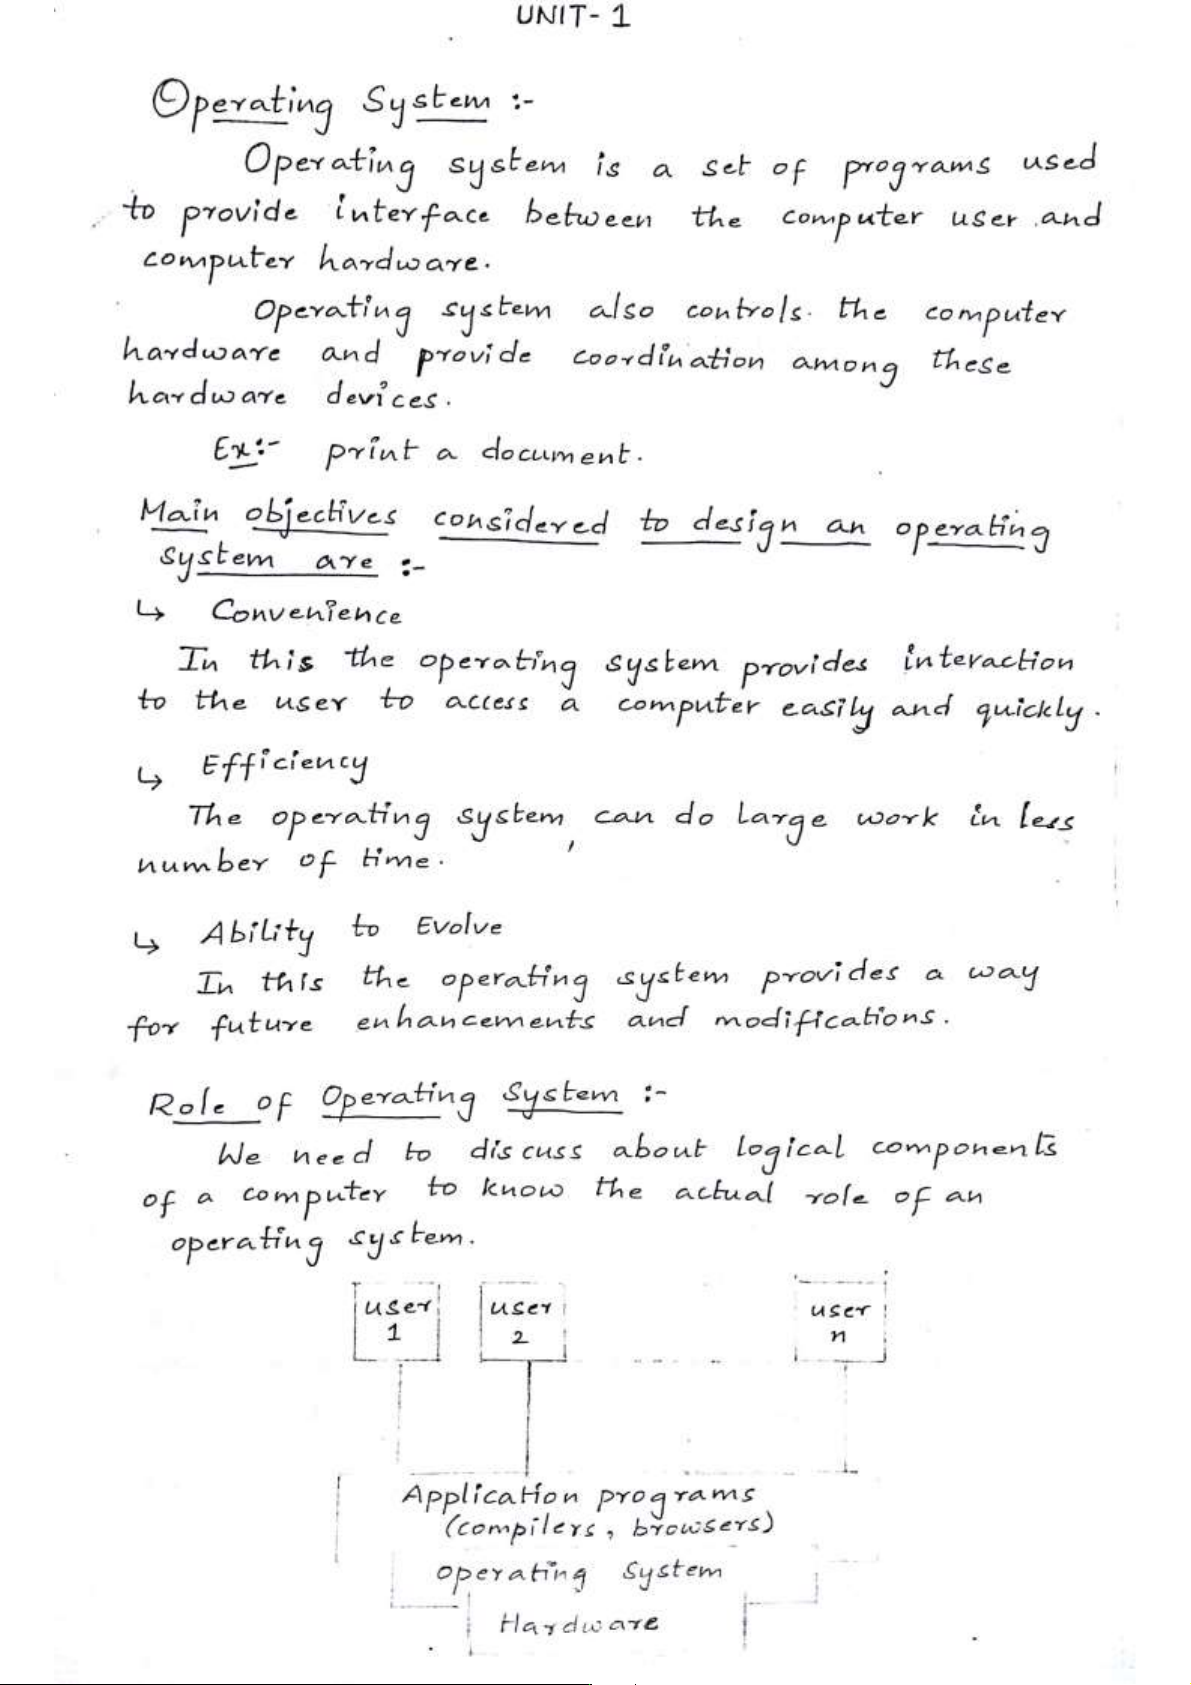 UNIT- 1
Operating System :-
Operating system is a set of programs used
to provide interface between the computer user and
computer hardware.
Operating system also controls the computer
hardware and provide coordination among these
hardware devices.
Ex:- print a document.
Main objectives considered to design an operating
system are :-
↳ Convenience
In this the operating system provides interaction
to the user to access a computer easily and quickly.
↳ Efficiency
The operating system, can do large work in less
number of time.
↳ Ability to Evolve
In this the operating system provides a way
for future enhancements and modifications.
Role of Operating System :-
We need to discuss about logical components
of a computer to know the actual role of an
operating system.
user user user
1 2 n
Application programs
(compilers, browsers)
operating system
Hardware